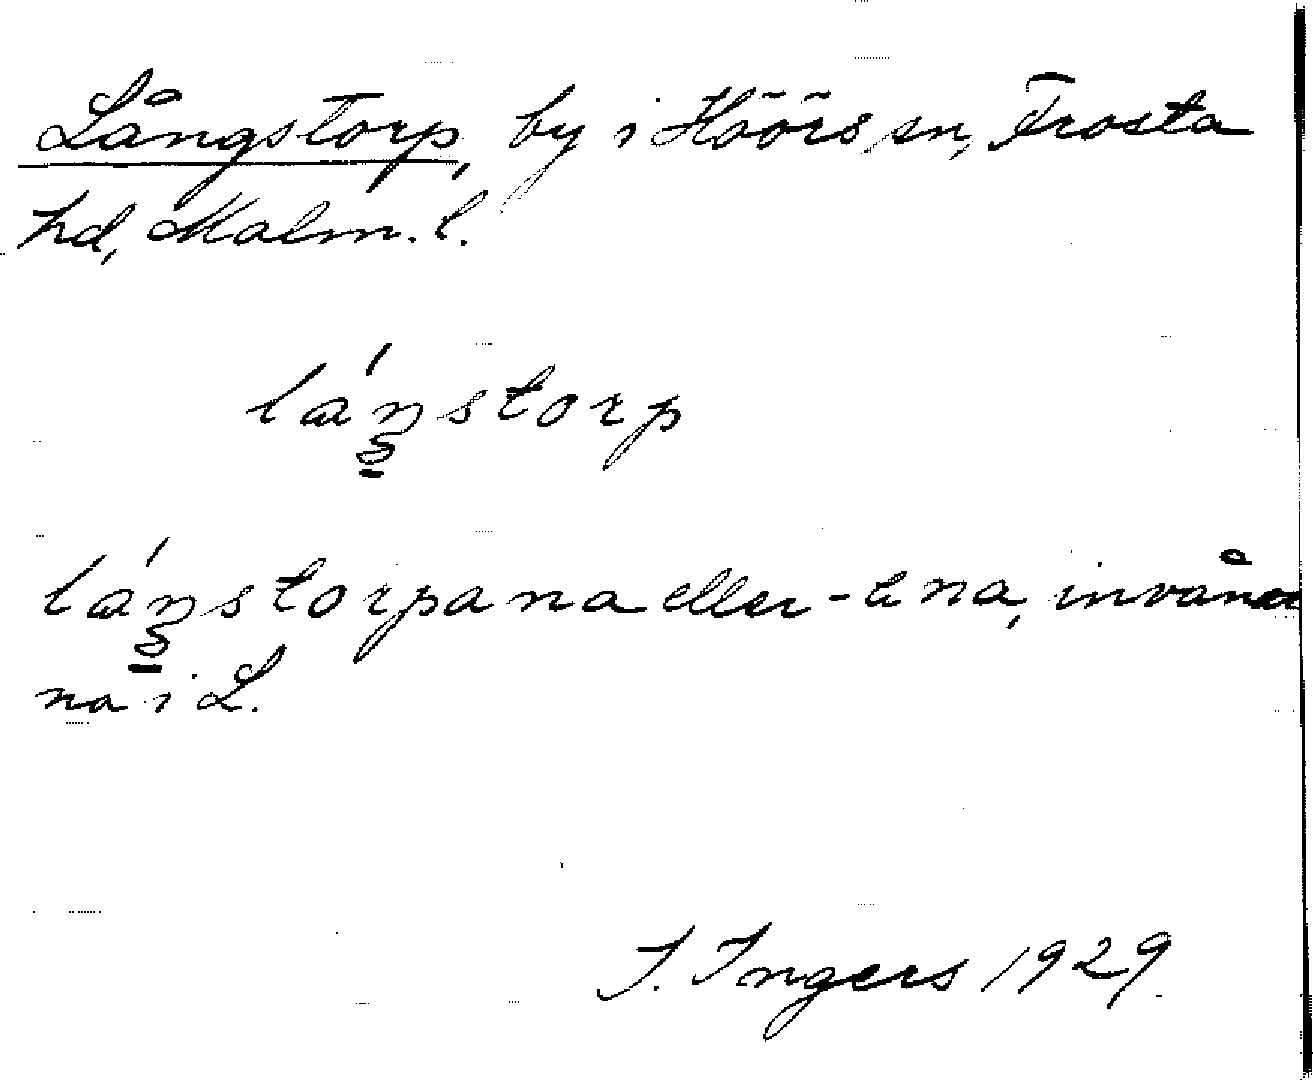 Långstorp, by i Höörs sn, Frosta
hd, Malm. l.
láŋstorp
láŋstorpana eller -ena, invånar
na i L.
I. Ingers 1929.